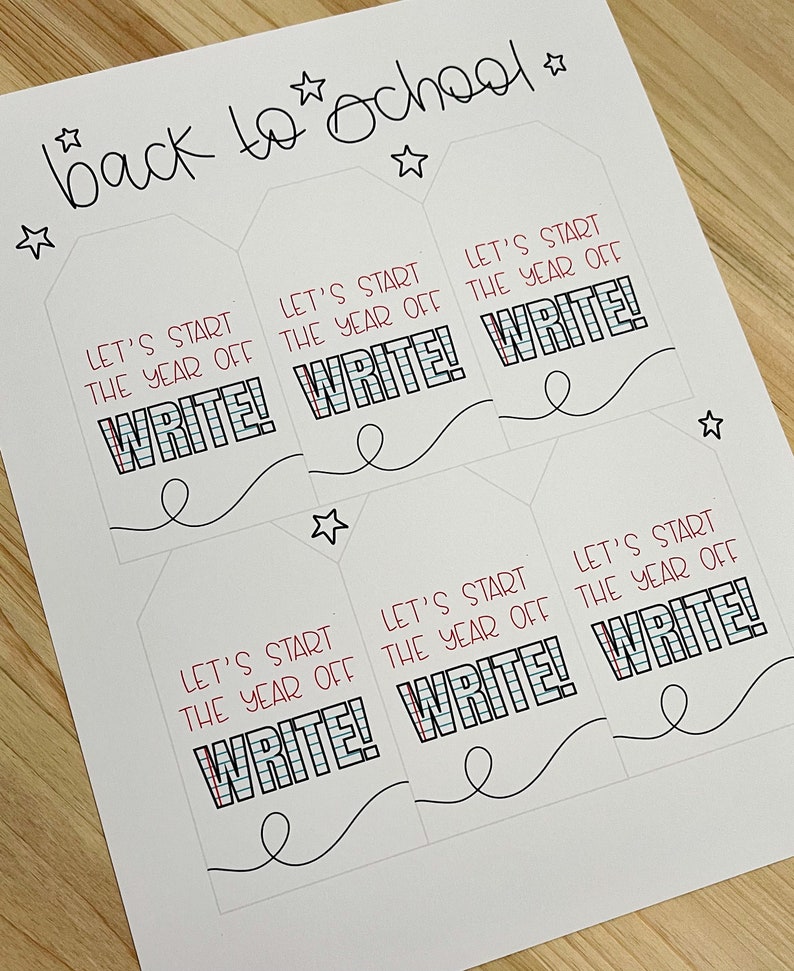 back to school
LET'S START
THE YEAR OFF
WRITE!
LET'S START
THE YEAR OFF
WRITE!
LET'S START
THE YEAR OFF
WRITE!
LET'S START
THE YEAR OFF
WRITE!
LET'S START
THE YEAR OFF
WRITE!
LET'S START
THE YEAR OFF
WRITE!